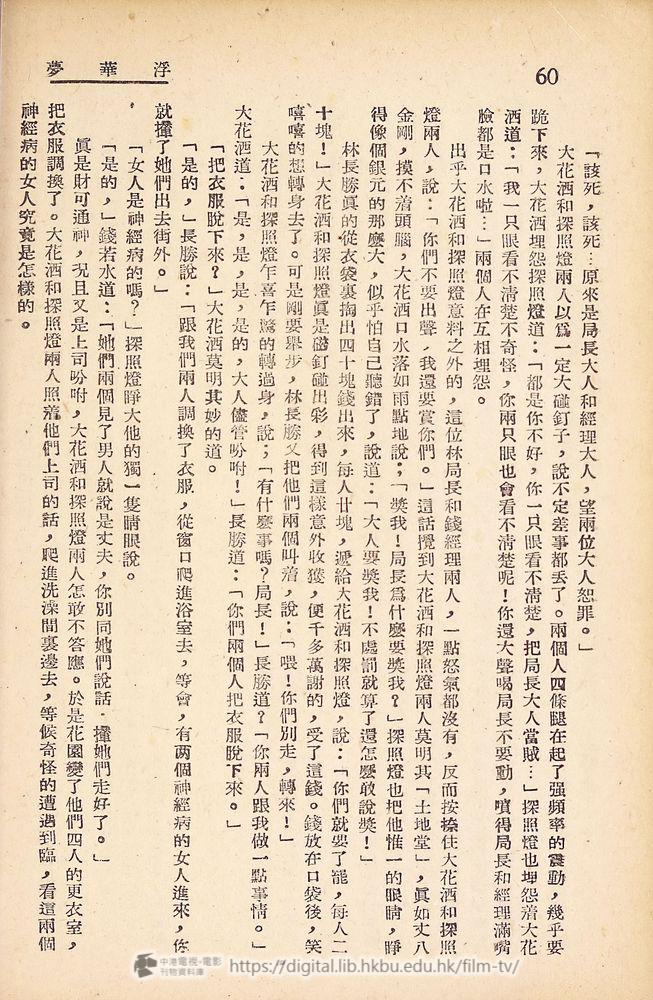 浮華夢
60
「該死，該死…原來是局長大人和經理大人，望兩位大人恕罪。」
大花酒和探照燈兩人以爲一定大碰釘子，說不定差事都丢了。兩個人四條腿在起了强頻率的震動，幾乎要
跪下來，大花酒埋怨探照燈道：「都是你不好，你一只眼看不淸楚，把局長大人當賊…」探照燈也埋怨着大花
酒道：「我一只眼看不淸楚不奇怪，你兩只眼也會看不淸楚呢！你還大聲喝局長不要動，噴得局長和經理滿嘴
臉都是口水啦…」兩個人在互相埋怨。
出乎大花酒和探照燈意料之外的，這位林局長和錢經理兩人，一點怒氣都沒有，反而按捺住大花酒和探照
燈兩人，說：「你們不要出聲，我還要賞你們。」這話攪到大花酒和探照燈兩人莫明其「土地堂」，眞如丈八
金剛，摸不着頭腦，大花酒口水落如雨點地說：「獎我！局長爲什麼要獎我？」探照燈也把他惟一的眼睛，睜
得像個銀元的那麼大，似乎怕自己聽錯了，說道：「大人要獎我！不處罰就算了還怎麼敢說獎！」
林長勝眞的從衣袋裏掏出四十塊錢出來，每人廿塊，遞給大花酒和探照燈，說：「你們就要了罷，每人二
十塊！」大花酒和探照燈眞是碰釘碰出彩，得到這樣意外收獲，便千多萬謝的，受了這錢。錢放在口袋後，笑
嘻嘻的想轉身去了。可是剛要舉步，林長勝又把他們兩個叫着，說：「喂！你們別走，轉來！」
大花酒和探照燈乍喜乍驚的轉過身，說；「有什麼事嗎？局長！」長勝道？「你兩人跟我做一點事情。」
大花酒道：「是，是，是，是的，大人儘管吩咐！」長勝道：「你們兩個人把衣服脫下來。」
「把衣服脫下來？」大花酒莫明其妙的道。
「是的，」長勝說：「跟我們兩人調換了衣服，從窗口爬進浴室去，等會，有两個神經病的女人進來，你
就攆了她們出去街外。」
「女人是神經病的嗎？」探照燈睜大他的獨一隻睛眼說。
「是的，」錢若水道：「她們兩個見了男人就說是丈夫，你別同她們說話．攆她們走好了。」
眞是財可通神，况且又是上司吩咐，大花酒和探照燈兩人怎敢不答應。於是花園變了他們四人的更衣室，
把衣服調換了。大花酒和探照燈兩人照着他們上司的話，爬進洗澡間裏邊去，等候奇怪的遭遇到臨，看這兩個
神經病的女人究竟是怎樣的。
中港電視·電影
刊物資料庫
https://digital.lib.hkbu.edu.hk/film-tv/